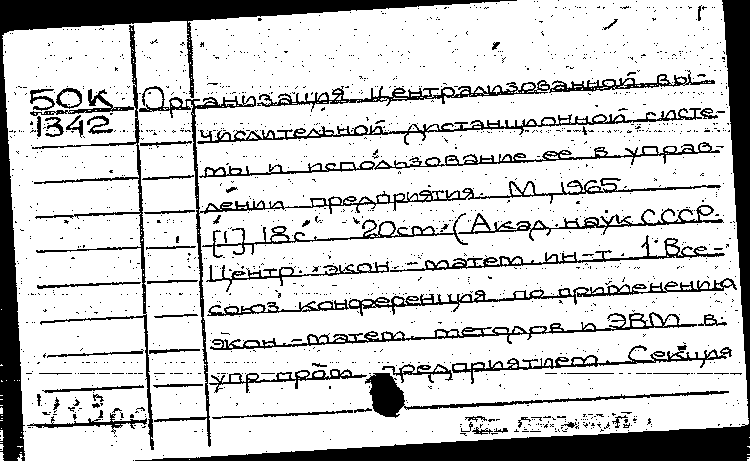 50К Организация централизованной вы-
1342 числительной дистанционной систе-
мы и использование ее в управ-
лении предприятия. М, 1965.
[1], 18 с. 20 cm. (Акад. наук СССР.
Центр. экон.-матем. ин-т. 1 Все-
союз конференция по применению
экон.-матем. методов и ЭВМ в
упр пром предприятием. Секция